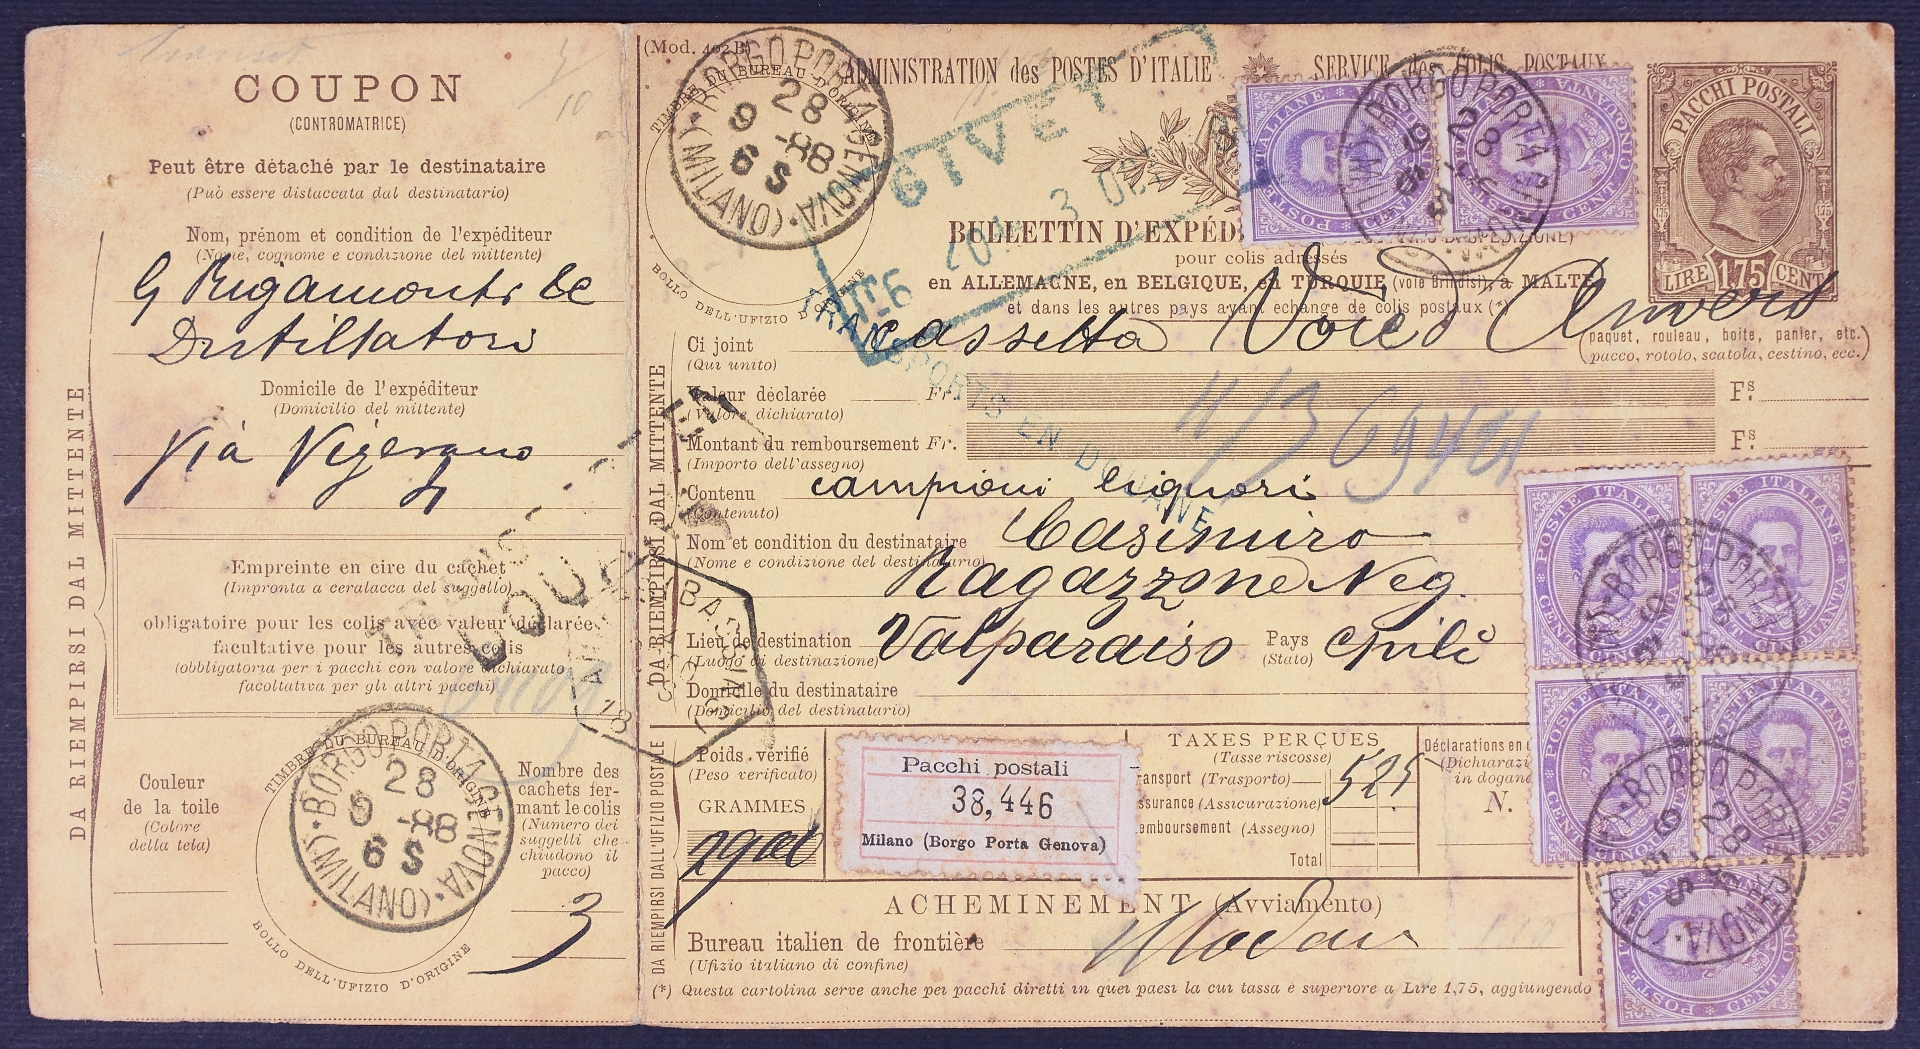 COUPON
(CONTROMATRICE)
Peut être détaché par le destinataire
(Può essere distaccata dal destinatario)
Nom, prénom et condition de l'expéditeur
(Nome, cognome e condizione del mittente)
G Rigamonti &c
Distillatori
Domicile de l'expéditeur
(Domicilio del mittente)
Via Vigevano
4
DA RIEMPIRSI DAL MITTENTE
Empreinte en cire du cachet
(Impronta a ceralacca del suggello)
obligatoire pour les colis avec valeur déclarée
facultative pour les autres colis
(obbligatoria per i pacchi con valore dichiarato
facoltativa per gli altri pacchi)
Couleur
de la toile
(Colore
della tela)
TIMBRE DU BUREAU D'ORIGINE
BORGO PORTA GENOVA
(MILANO)
28
9 -88
6 S
BOLLO DELL'UFIZIO D'ORIGINE
Nombre des
cachets fer-
mant le colis
(Numero dei
suggelli che
chiudono il
pacco)
3
(Mod. 402 B)
TIMBRE DU BUREAU D'ORIGINE
BORGO PORTA GENOVA
(MILANO)
28
9 -88
6 S
BOLLO DELL'UFIZIO D'ORIGINE
ADMINISTRATION des POSTES D'ITALIE
SERVICE des COLIS POSTAUX
GIVET
3 OCT
BULLETTIN D'EXPÉD
pour colis adressés
en ALLEMAGNE, en BELGIQUE, en TURQUIE (voie Brindisi), à MALTE
et dans les autres pays ayant échange de colis postaux (*)
PACCHI POSTALI
LIRE 1,75 CENT
Ci joint
(Qui unito)
cassetta Voie d'Anvers
(paquet, rouleau, boite, panier, etc.
pacco, rotolo, scatola, cestino, ecc.)
TRANSPORTS EN DOUANE
Valeur déclarée Fr.
(Valore dichiarato)
Fs:
Montant du remboursement Fr.
(Importo dell'assegno)
Fs:
Contenu
(Contenuto)
campioni liquori
Nom et condition du destinataire
(Nome e condizione del destinatario)
Casimiro
Ragazzone Neg.
Lieu de destination
(Luogo di destinazione)
Valparaiso
Pays
(Stato)
Chili
Domicile du destinataire
(Domicilio del destinatario)
DA RIEMPIRSI DAL MITTENTE
DOUA
POSTE ITALIANE
CENT CINQUANTA
DA RIEMPIRSI DALL'UFIZIO POSTALE
Poids vérifié
(Peso verificato)
GRAMMES
2900
Pacchi postali
38,446
Milano (Borgo Porta Genova)
TAXES PERÇUES
(Tasse riscosse)
ansport (Trasporto)
525
ssurance (Assicurazione)
emboursement (Assegno)
Total
Déclarations en
(Dichiarazi
in dogan
N.
ACHEMINEMENT (Avviamento)
Bureau italien de frontière
(Ufizio italiano di confine)
Modan
(*) Questa cartolina serve anche pei pacchi diretti in quei paesi la cui tassa è superiore a Lire 1,75, aggiungendo